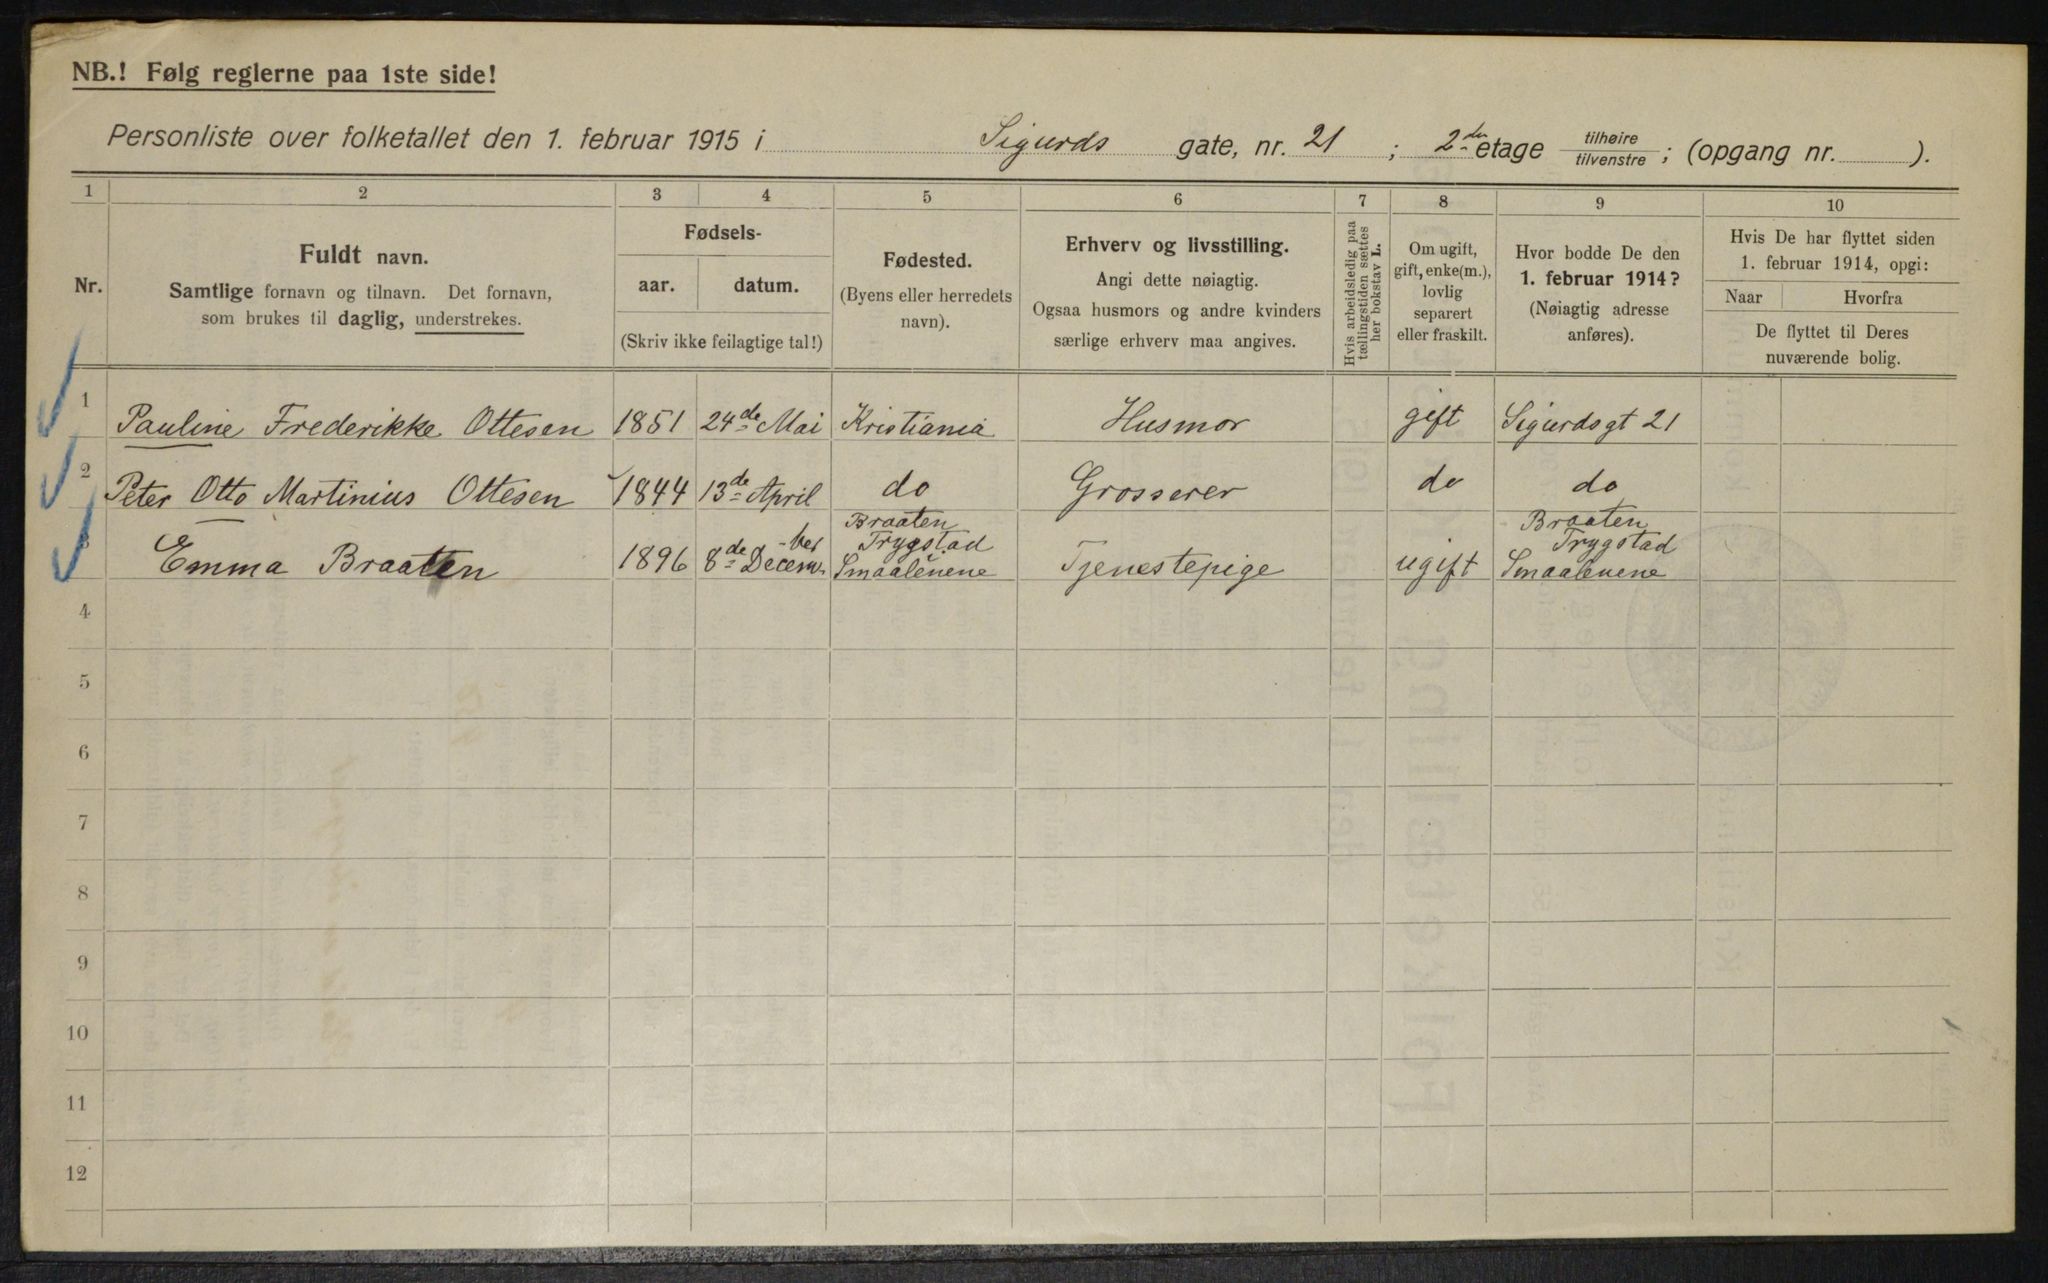 NB.! Følg reglerne paa 1ste side!
Personliste over folketallet den 1. februar 1915 i Sigurds gate, nr. 21 ; 2de etage tilhøire/tilvenstre ; (opgang nr. ).
1 2 3 4 5 6 7 8 9 10
Nr.
Fuldt navn.
Samtlige fornavn og tilnavn. Det fornavn,
som brukes til daglig, understrekes.
Fødsels-
aar. datum.
(Skriv ikke feilagtige tal!)
Fødested.
(Byens eller herredets
navn).
Erhverv og livsstilling.
Angi dette nøiagtig.
Ogsaa husmors og andre kvinders
særlige erhverv maa angives.
Hvis arbeidsledig paa
tællingstiden sættes
her bokstav L.
Om ugift,
gift, enke(m.),
lovlig
separert
eller fraskilt.
Hvor bodde De den
1. februar 1914?
(Nøiagtig adresse
anføres).
Hvis De har flyttet siden
1. februar 1914, opgi:
Naar Hvorfra
De flyttet til Deres
nuværende bolig.
1 Pauline Frederikke Ottesen 1851 24de Mai Kristiania Husmor gift Sigurdsgt 21
2 Peter Otto Martinius Ottesen 1844 13de April do Grosserer do do
Braaten Braaten
-ber Trygstad Trygstad
3 Emma Braaten 1896 8de Decem- Smaalenene Tjenestepige ugift Smaalenene
4
5
6
7
8
9
10
11
12